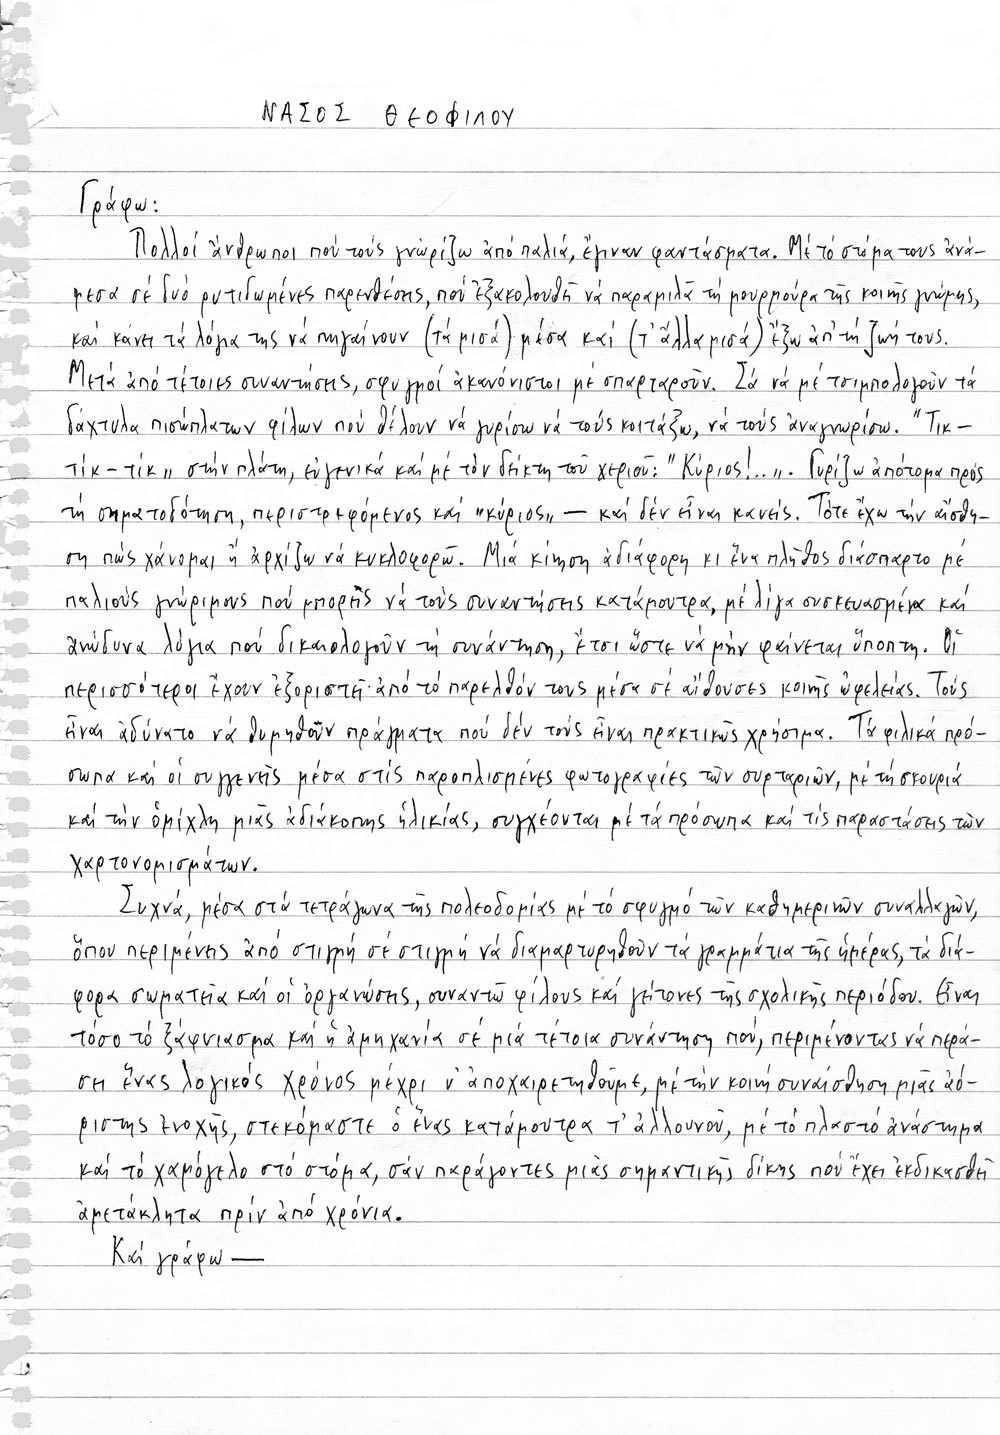 ΝΑΣΟΣ ΘΕΟΦΙΛΟΥ
Γράφω:
Πολλοί ἄνθρωποι πού τούς γνώριζω ἀπό παλιά, ἔγιναν φαντάσματα. Μέ τό στόμα τους ἀνά-
μεσα σέ δυό ρυτιδωμένες παρενθέσεις, πού ἐξακολουθεῖ νά παραμιλᾶ τή μουρμούρα τῆς κοινῆς γνώμης,
καί κάνει τά λόγια της νά πηγαίνουν (τά μισά) μέσα καί (τ' ἄλλα μισά) ἔξω ἀπ' τή ζωή τους.
Μετά ἀπό τέτοιες συναντήσεις, σφυγμοί ἀκανόνιστοι μέ σπαρταροῦν. Σά νά μέ τσιμπολογοῦν τά
δάχτυλα πισώπλατων φίλων πού θέλουν νά γυρίσω νά τούς κοιτάξω, νά τούς ἀναγνωρίσω. "Τικ-
τίκ-τίκ„ στήν πλάτη, εὐγενικά καί μέ τόν δείκτη τοῦ χεριοῦ: "Κύριος!..„. Γυρίζω ἀπότομα πρός
τή σηματοδότηση, περιστρεφόμενος καί "κύριος„ — καί δέν εἶναι κανείς. Τότε ἔχω τήν αἴσθη-
ση πώς χάνομαι ἤ ἀρχίζω νά κυκλοφορῶ. Μιά κίνηση ἀδιάφορη κι ἕνα πλῆθος διάσπαρτο μέ
παλιούς γνώριμους πού μπορεῖς νά τούς συναντήσεις κατάμουτρα, μέ λίγα συσκευασμένα καί
ἀνώδυνα λόγια πού δικαιολογοῦν τή συνάντηση, ἔτσι ὥστε νά μήν φαίνεται ὕποπτη. Οἱ
περισσότεροι ἔχουν ἐξοριστεῖ ἀπό τό παρελθόν τους μέσα σέ αἴθουσες κοινῆς ὠφελείας. Τούς
εἶναι ἀδύνατο νά θυμηθοῦν πράγματα πού δέν τούς εἶναι πρακτικῶς χρήσιμα. Τά φιλικά πρό-
σωπα καί οἱ συγγενεῖς μέσα στίς παροπλισμένες φωτογραφίες τῶν συρταριῶν, μέ τή σκουριά
καί τήν ὁμίχλη μιᾶς ἀδιάκοπης ἡλικίας, συγχέονται μέ τά πρόσωπα καί τίς παραστάσεις τῶν
χαρτονομισμάτων.
Συχνά, μέσα στά τετράγωνα τῆς πολεοδομίας μέ τό σφυγμό τῶν καθημερινῶν συναλλαγῶν,
ὅπου περιμένεις ἀπό στιγμή σέ στιγμή νά διαμαρτυρηθοῦν τά γραμμάτια τῆς ἡμέρας, τά διά-
φορα σωματεῖα καί οἱ ὀργανώσεις, συναντῶ φίλους καί γείτονες τῆς σχολικῆς περιόδου. Εἶναι
τόσο τό ξάφνιασμα καί ἡ ἀμηχανία σέ μιά τέτοια συνάντηση πού, περιμένοντας νά περά-
σει ἕνας λογικός χρόνος μέχρι ν' ἀποχαιρετηθοῦμε, μέ τήν κοινή συναίσθηση μιᾶς ἀό-
ριστης ἐνοχῆς, στεκόμαστε ὁ ἕνας κατάμουτρα τ' ἀλλουνοῦ, μέ τό πλαστό ἀνάστημα
καί τό χαμόγελο στό στόμα, σάν παράγοντες μιᾶς σημαντικῆς δίκης πού ἔχει ἐκδικασθεῖ
ἀμετάκλητα πρίν ἀπό χρόνια.
Καί γράφω —